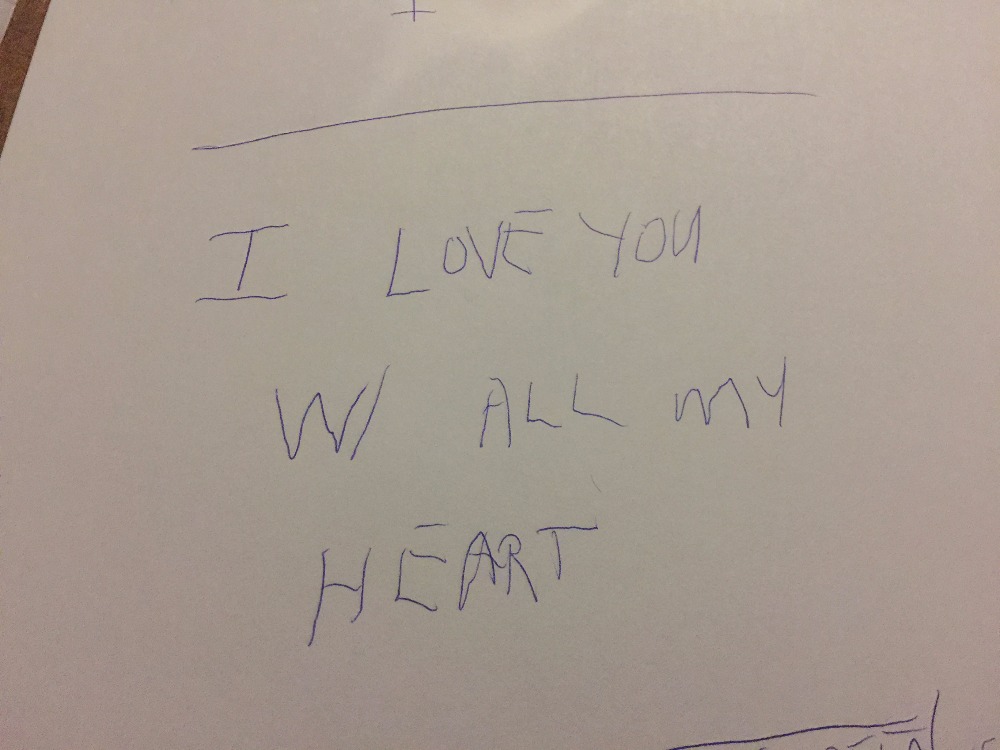 I LOVE YOU
W/ ALL MY
HEART